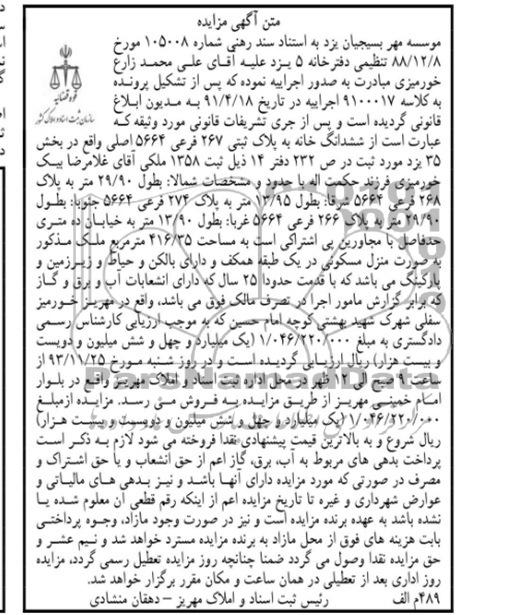 متن آگهی مزایده
موسسه مهر بسیجیان یزد به استناد سند رهنی شماره ۱۰۵۰۰۸ مورخ
۸۸/۱۲/۸ تنظیمی دفترخانه ۵ یزد علیه آقای علی محمد زارع
خورمیزی مبادرت به صدور اجراییه نموده که پس از تشکیل پرونده
به کلاسه ۹۱۰۰۰۱۷ اجراییه در تاریخ ۹۱/۴/۱۸ به مدیون ابلاغ
قانونی گردیده است و پس از جری تشریفات قانونی مورد وثیقه که
عبارت است از ششدانگ خانه به پلاک ثبتی ۲۶۷ فرعی ۵۶۶۴ اصلی واقع در بخش
۳۵ یزد مورد ثبت در ص ۲۳۲ دفتر ۱۴ ذیل ثبت ۱۳۵۸ ملکی آقای غلامرضا بیک
خورمیزی فرزند حکمت اله با حدود و مشخصات شمالا: بطول ۲۹/۹۰ متر به پلاک
۲۶۸ فرعی ۵۶۶۴ شرقا: بطول ۱۳/۹۵ متر به پلاک ۲۷۴ فرعی ۵۶۶۴ جنوبا: بطول
۲۹/۹۰ متر به پلاک ۲۶۶ فرعی ۵۶۶۴ غربا: بطول ۱۳/۹۰ متر به خیابان ده متری
حدفاصل با مجاورین پی اشتراکی است به مساحت ۴۱۶/۳۵ مترمربع ملک مذکور
به صورت منزل مسکونی در یک طبقه همکف و دارای بالکن و حیاط و زیرزمین و
پارکینگ می باشد که با قدمت حدودا ۲۵ سال که دارای انشعابات آب و برق و گاز
که برابر گزارش مامور اجرا در تصرف مالک فوق می باشد، واقع در مهریز خورمیز
سفلی شهرک شهید بهشتی کوچه امام حسین که به موجب ارزیابی کارشناس رسمی
دادگستری به مبلغ ۱/۰۴۶/۲۲۰/۰۰۰ (یک میلیارد و چهل و شش میلیون و دویست
و بیست هزار) ریال ارزیابی گردیده است و در روز شنبه مورخ ۹۳/۱۱/۲۵ از
ساعت ۹ صبح الی ۱۲ ظهر در محل اداره ثبت اسناد و املاک مهریز واقع در بلوار
امام خمینی مهریز از طریق مزایده به فروش می رسد. مزایده ازمبلغ
۱/۰۴۶/۲۲۰/۰۰۰ (یک میلیارد و چهل و شش میلیون و دویست و بیست هزار)
ریال شروع و به بالاترین قیمت پیشنهادی نقدا فروخته می شود لازم به ذکر است
پرداخت بدهی های مربوط به آب، برق، گاز اعم از حق انشعاب و یا حق اشتراک و
مصرف در صورتی که مورد مزایده دارای آنها باشد و نیز بدهی های مالیاتی و
عوارض شهرداری و غیره تا تاریخ مزایده اعم از اینکه رقم قطعی آن معلوم شده یا
نشده باشد به عهده برنده مزایده است و نیز در صورت وجود مازاد، وجوه پرداختی
بابت هزینه های فوق از محل مازاد به برنده مزایده مسترد خواهد شد و نیم عشر و
حق مزایده نقدا وصول می گردد ضمنا چنانچه روز مزایده تعطیل رسمی گردد، مزایده
روز اداری بعد از تعطیلی در همان ساعت و مکان مقرر برگزار خواهد شد.
۴۸۹م الف رئیس ثبت اسناد و املاک مهریز – دهقان منشادی
قوه قضائیه
سازمان ثبت اسناد و املاک کشور
ParsNamadData